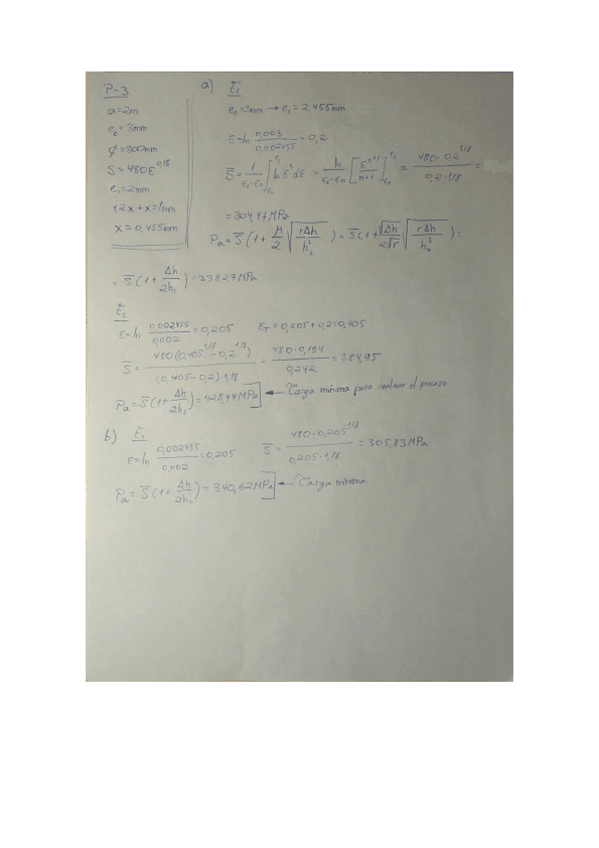 P-3
a=2m
e₀=3mm
φ=300mm
S=480ε^0,18
e₁=2mm
1,2x+x=1mm
x=0,455mm
a) E₁
e₀=3mm → e₁=2,455mm
ε=ln 0,003/0,002455 = 0,2
S̄ = 1/(ε₁-ε₀) ∫ k ε^n dε = k/(ε₁-ε₀) [ε^(n+1)/(n+1)] = 480·0,2^1,18/(0,2·1,18) =
=304,17MPa
Pa=S̄(1+μ/2 √(rΔh/h₂²))=S̄(1+√Δh/(2√r) √(rΔh/h₂²))=
=S̄(1+Δh/2h₂)=338,27MPa
E₂
ε=ln 0,002455/0,002=0,205 ε_T=0,205+0,2=0,405
S̄=480(0,405^1,18-0,2^1,18)/((0,405-0,2)·1,18)=480·0,194/0,242=384,95
Pa=S̄(1+Δh/2h₂)=428,74MPa] ← Carga mínima para realizar el proceso
b) E₂
ε=ln 0,002455/0,002=0,205 S̄=480·0,205^1,18/(0,205·1,18)=305,83MPa
Pa=S̄(1+Δh/2h₂)=340,62MPa] ← Carga mínima